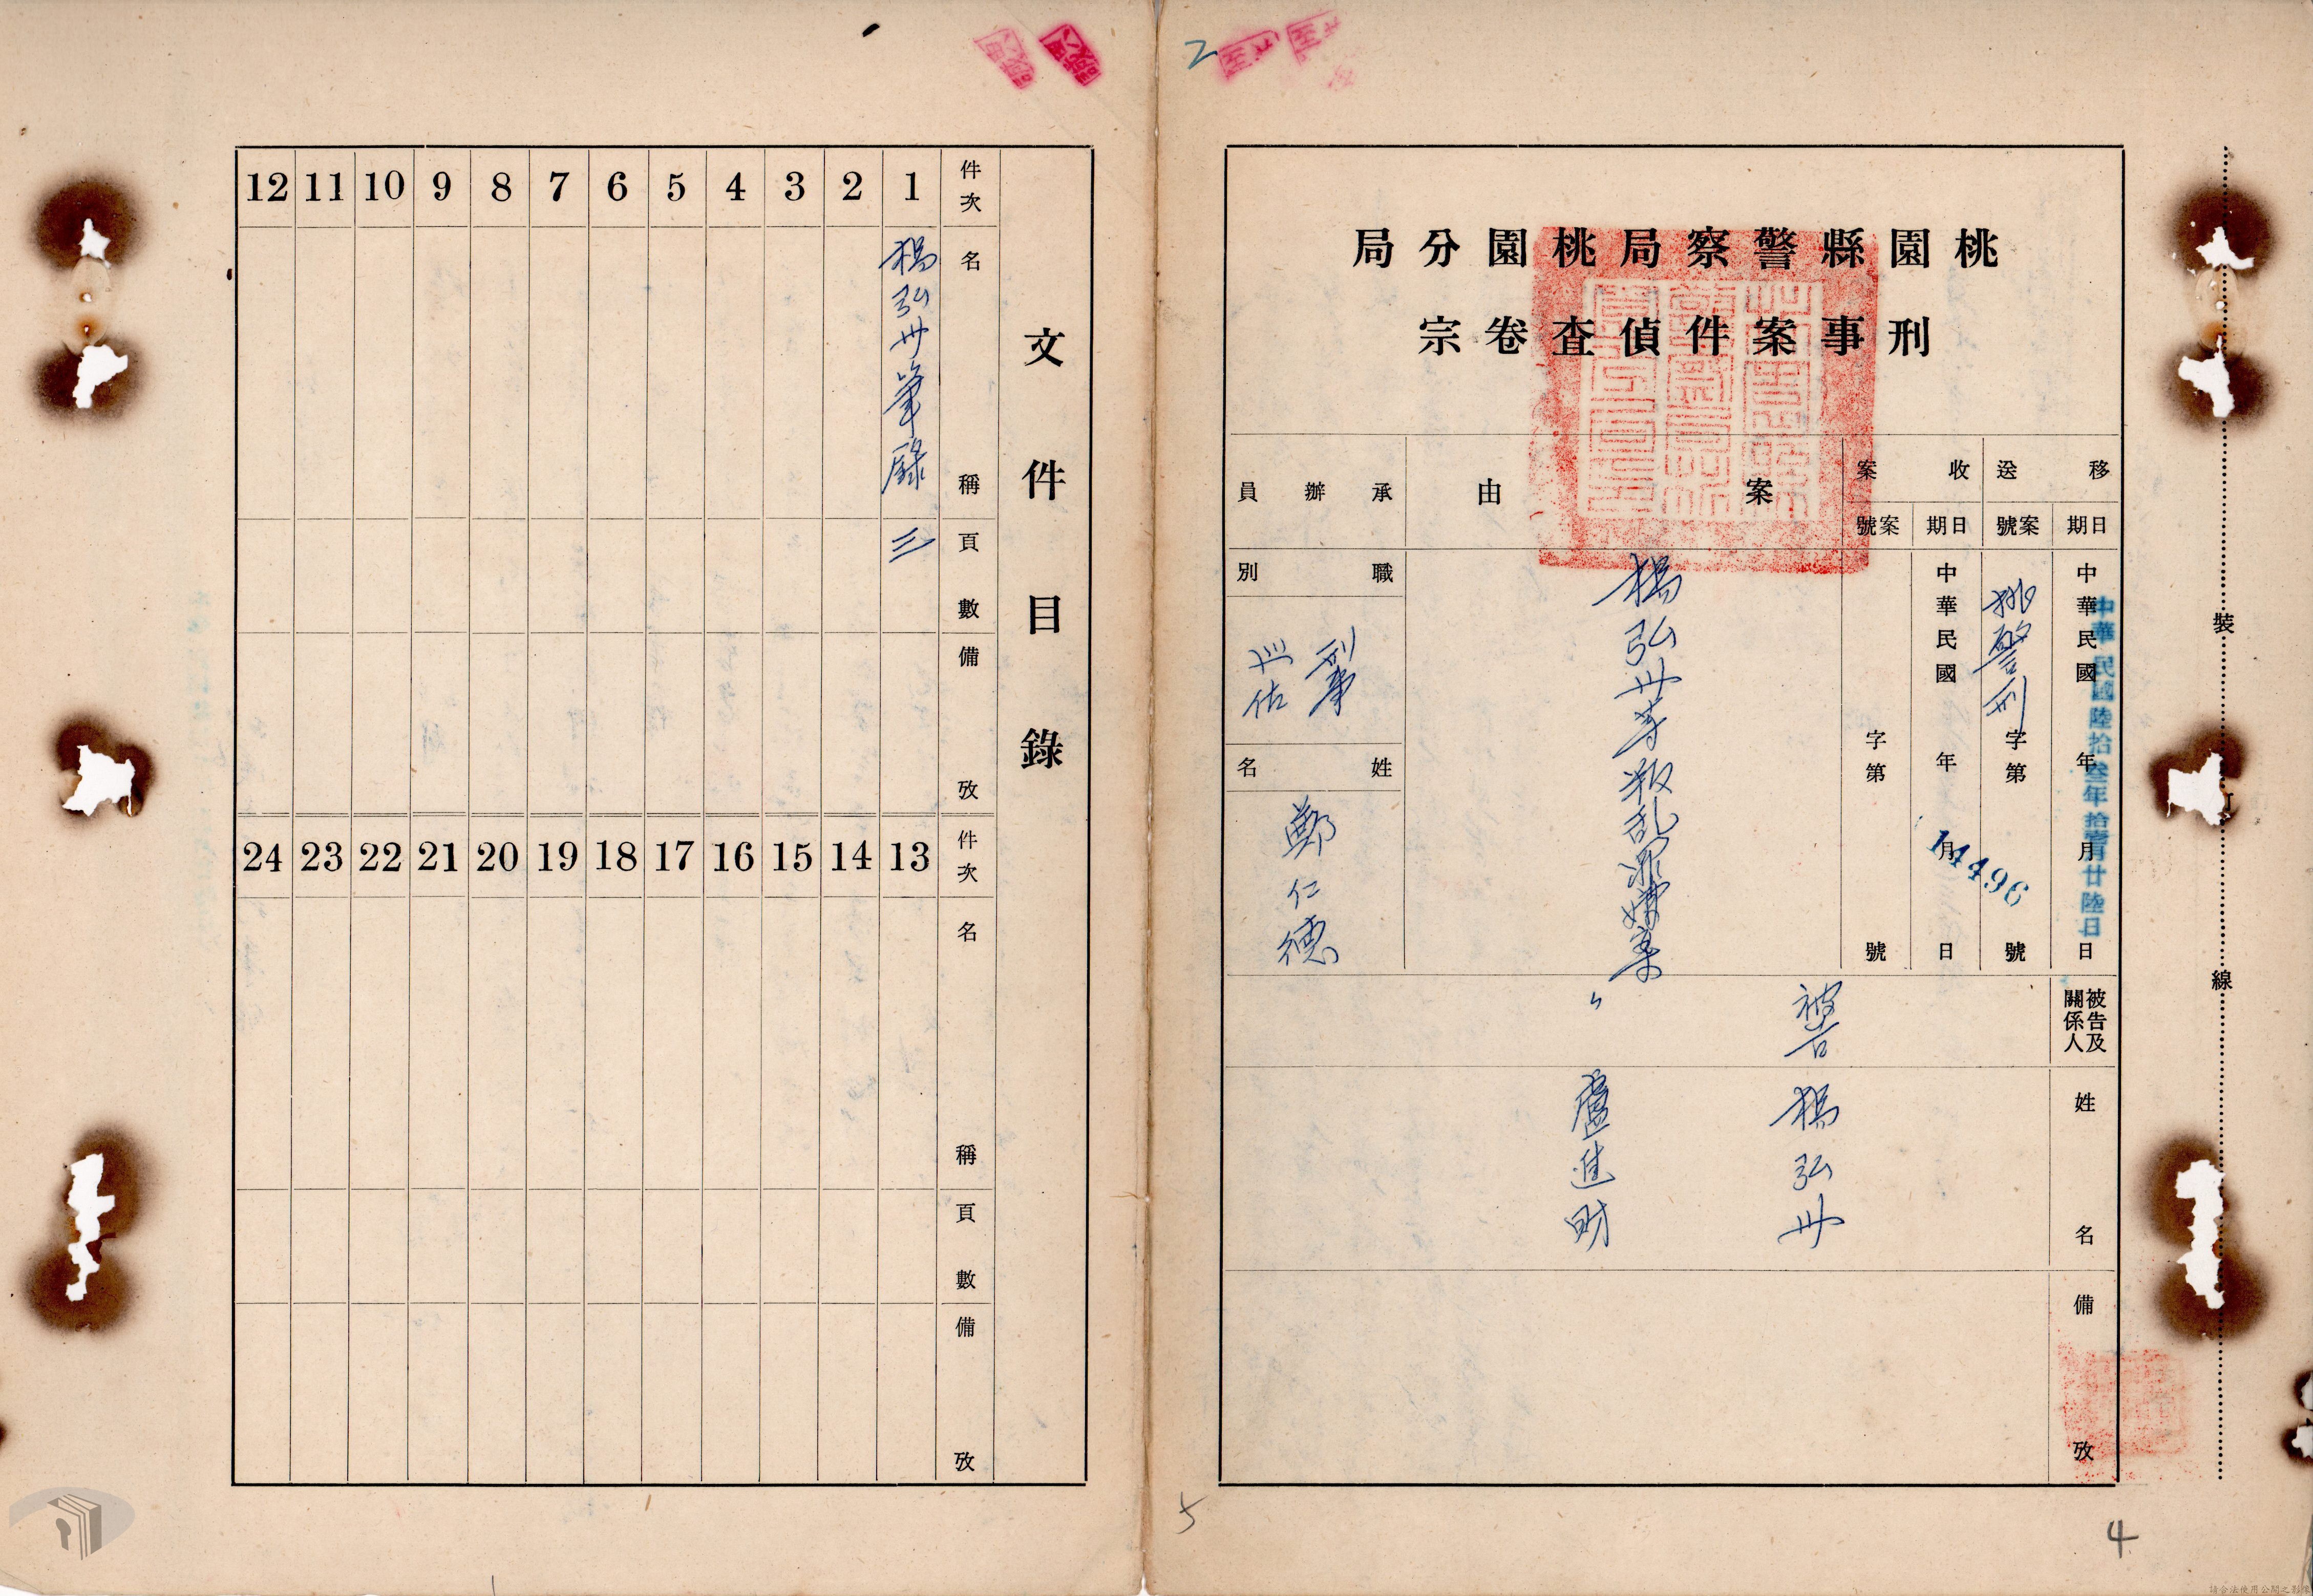 桃園縣警察局桃園分局
刑事案件偵查卷宗
移送
日期
中華民國 年 月 日
中華民國陸拾叁年拾壹月廿陸日
案號
桃警刑字第 號
14496
收案
日期
中華民國 年 月 日
案號
字第 號
案由
楊弘卅等叛乱罪嫌案
承辦員
職別
刑事
姓名
鄭仁德
被告及關係人
被告
〃
姓名
楊弘卅
盧進財
備攷
裝
訂
線
2
4
5
文件目錄
件次
名稱
頁數
備攷
1
楊弘卅筆錄
三
2
3
4
5
6
7
8
9
10
11
12
件次
名稱
頁數
備攷
13
14
15
16
17
18
19
20
21
22
23
24